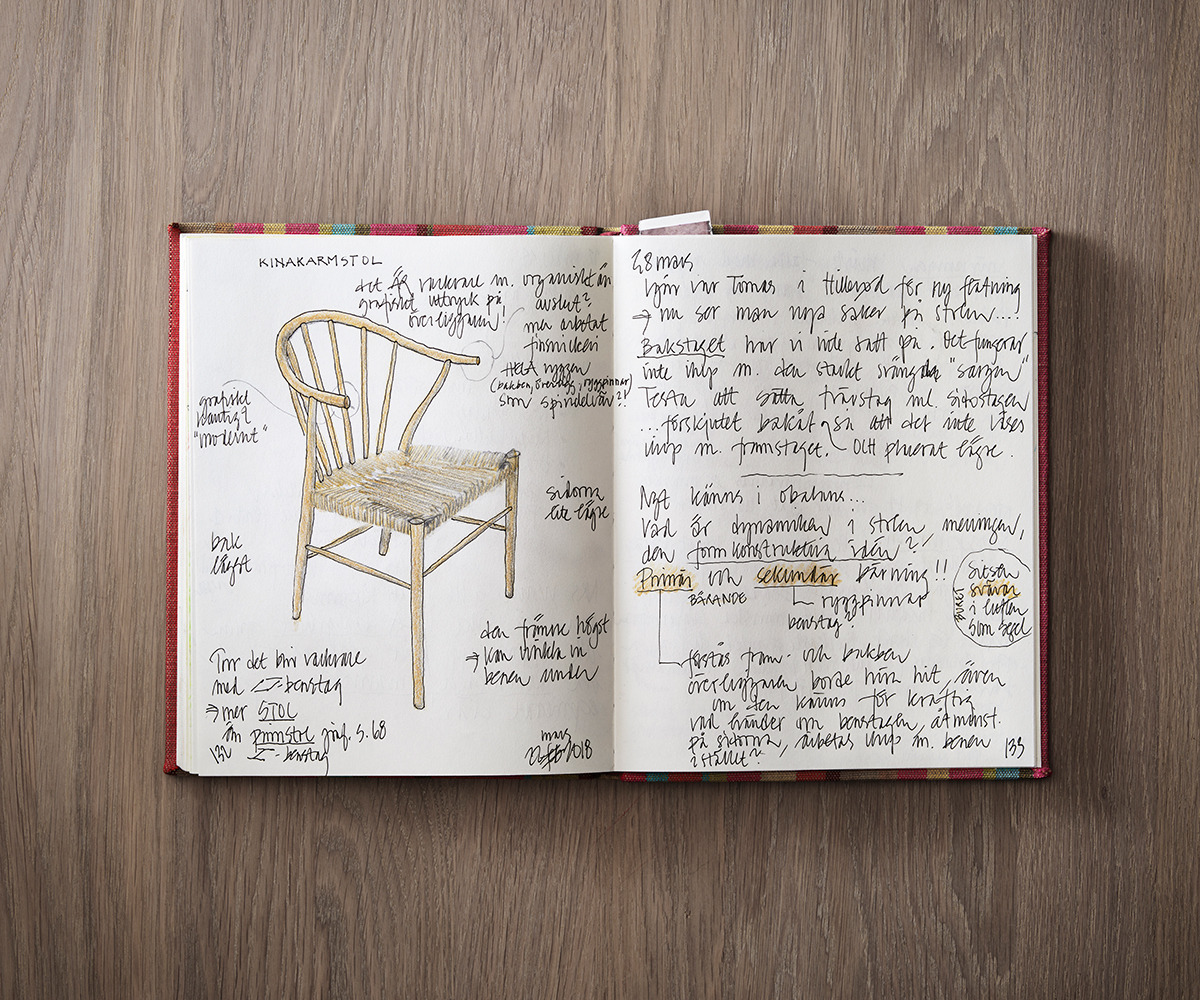 KINAKARMSTOL
det ÄR vackrare m. organiskt än
grafiskt uttryck på
överliggaren!
avslut?
mer arbetat
finsnickeri
HELA ryggen
(bakben, överligg, ryggpinnar)
som spindelväv?!
grafiskt
"modernt"
sidorna
lite lägre
bak
lägst
den främre högst
⇒ kan vinkla in
benen under
Tror det blir vackrare
med benstag
⇒ mer STOL
än pinnstol jmf. s. 68
132 benstag
mars
2018
28 mars
Igår var Tomas i Hillerød för ny
⇒ nu ser man nya saker på stolen...!
Bakstaget har vi inte satt på. Det fungerar
inte ihop m. den starkt svängda "sargen"
Testa att sätta tvärstag ml. sidostagen
...förskjutet bakåt så att det inte läses
ihop m. framstaget. OCH placerat lägre.
Ngt känns i obalans...
Vad är dynamiken i stolen, meningen,
den formkonstruktiva idén?
Primär och sekundär bärning!!
BÄRANDE
BURET
ryggpinnar
benstag?
Sitsen
svävar
i luften
som segel
förstås fram- och bakben
överliggaren borde höra hit, även
om den känns för kraftig
vad händer om benstagen, åtminst.
på sidorna, arbetas ihop m. benen
istället?
133